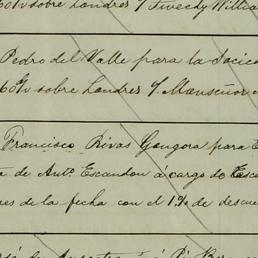 60 d/v sobre Londres y/ Tweedy Willia
Pedro del Valle para la Socie
60 d/v sobre Londres y/ Manseñor
Francisco Rivas Gongora para E
a de Ant.º Escandon á cargo de Esca
es de la fecha con el 1% de descue